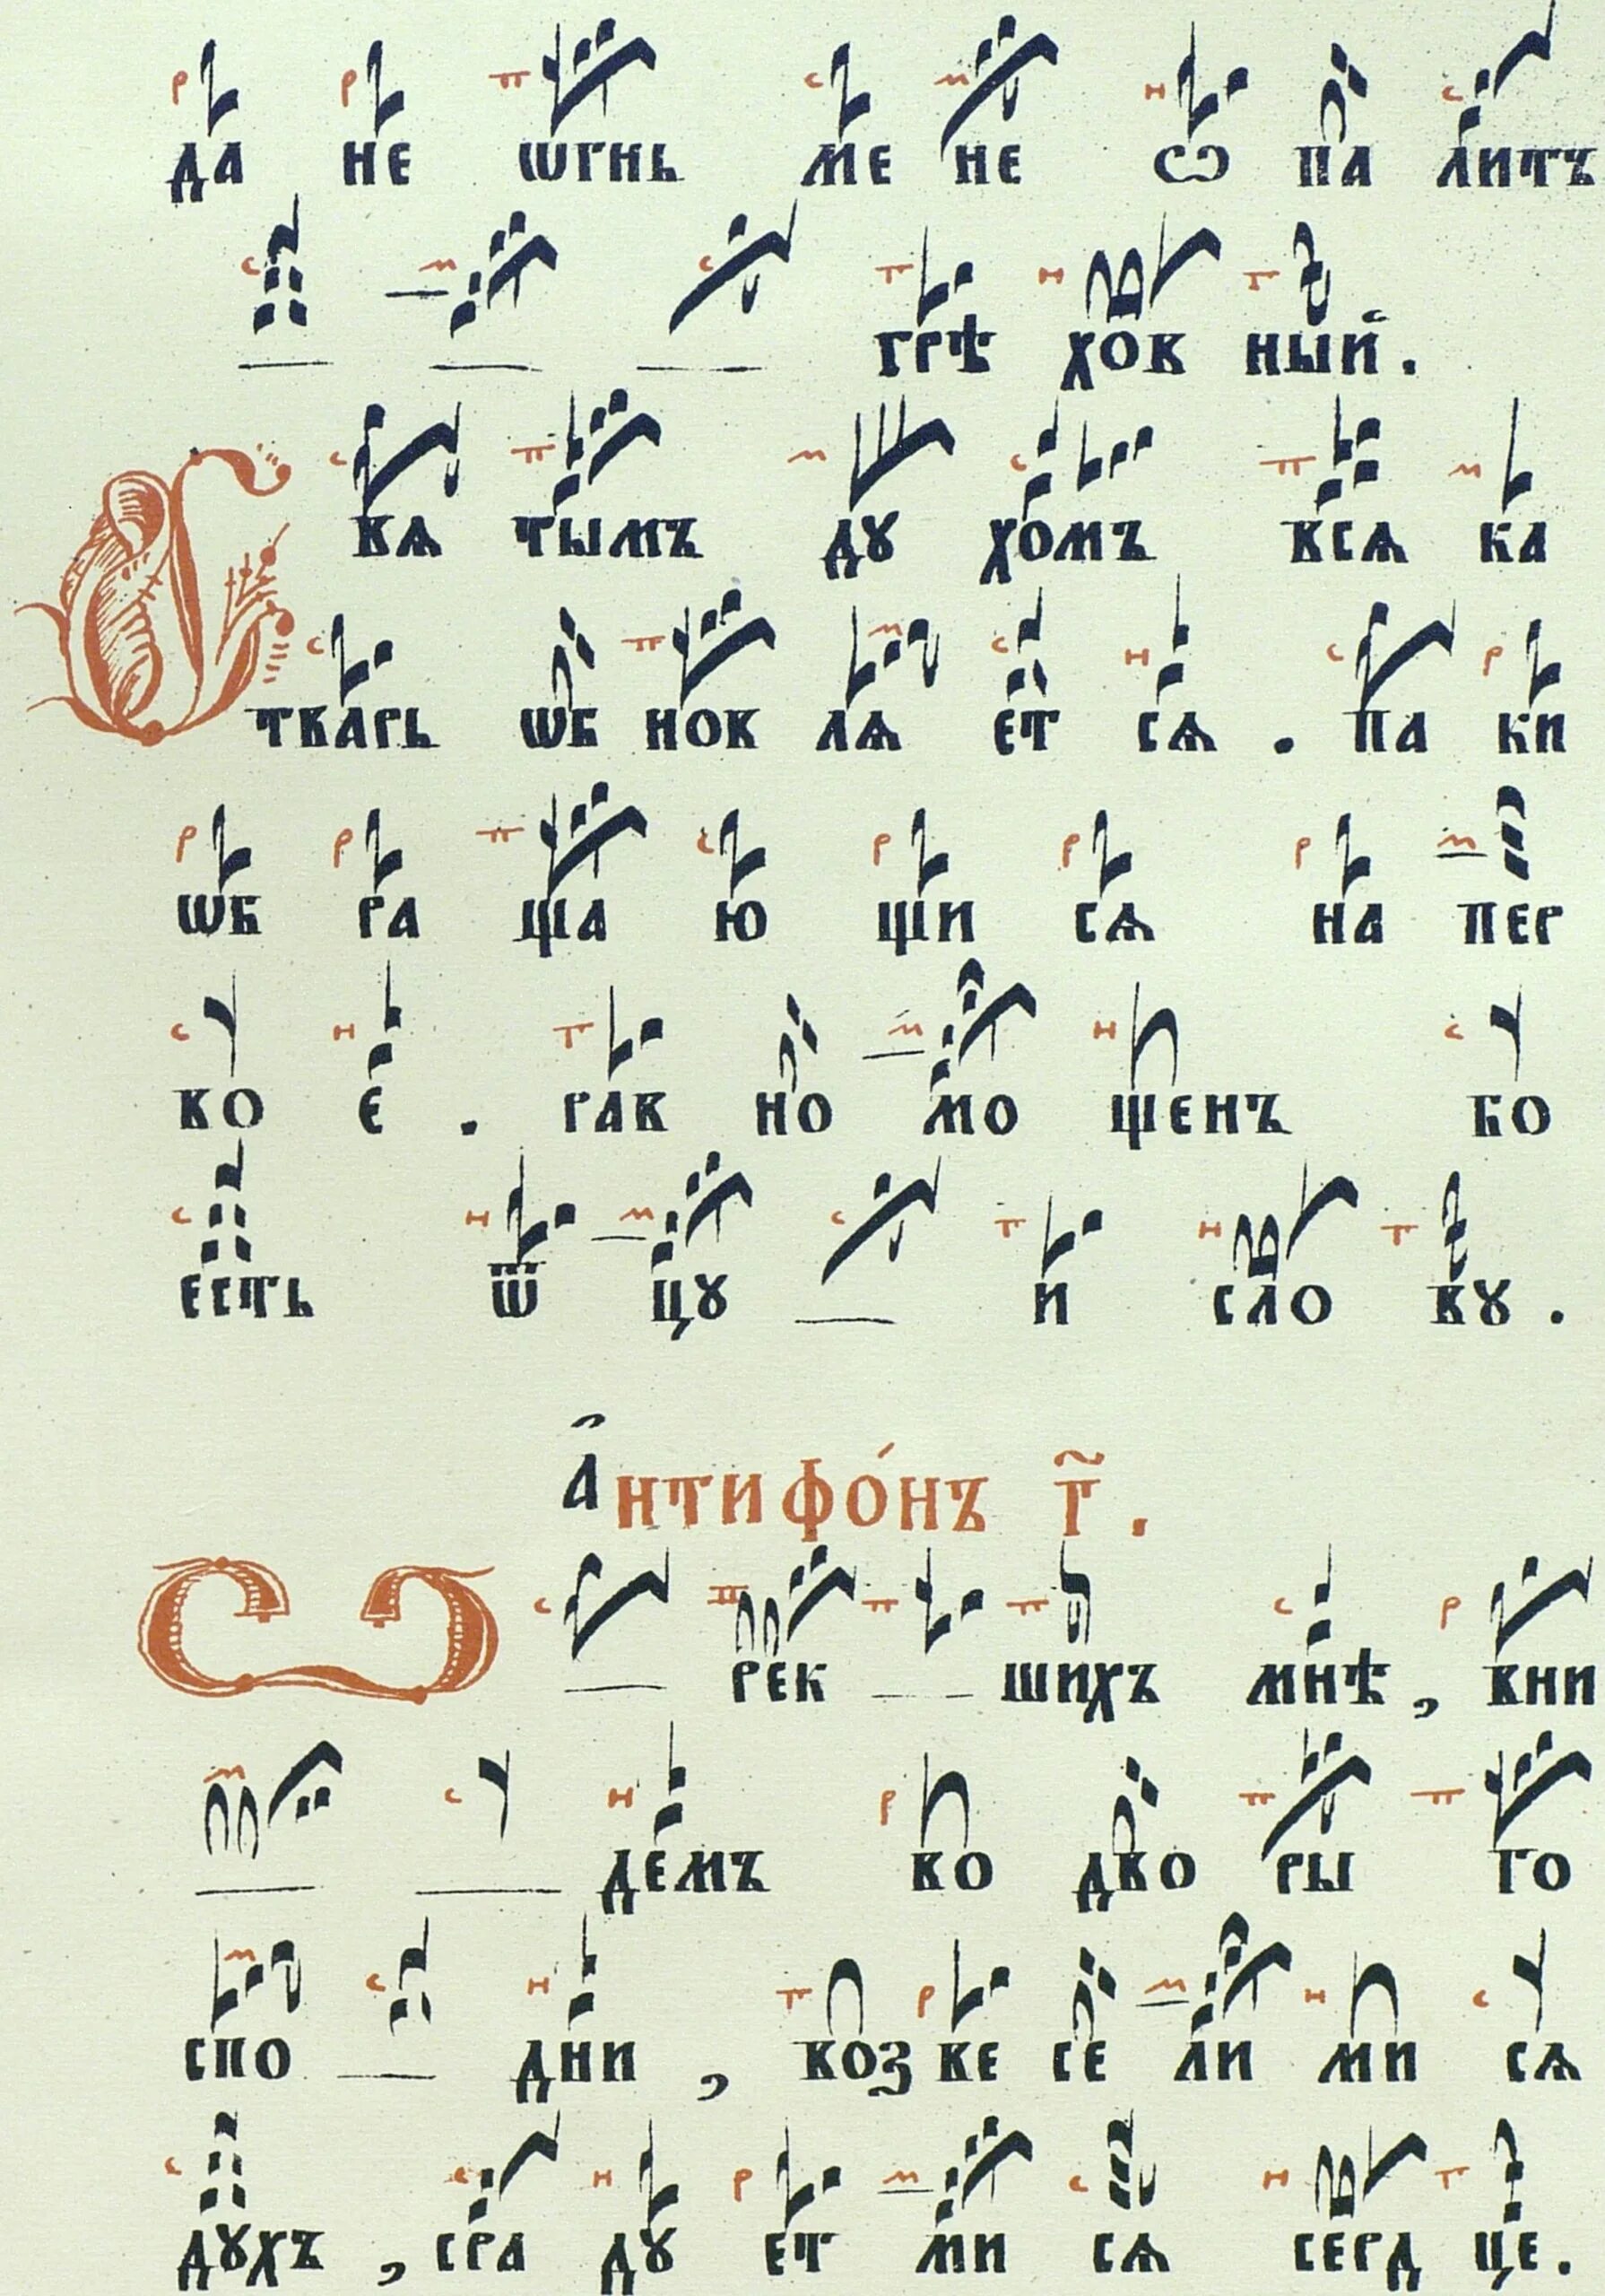 да не ѡгнь ме не ѡ па литъ
грѣ хов ный .
С вѧ тымъ дꙋ хомъ всѧ ка
тварь ѡб нов лѧ ет сѧ . па ки
ѡб ра ща ю щи сѧ на пер
во е . рав но мо щенъ бо
есть ѿ цꙋ и сло вꙋ .
А҆нтифо́нъ г҃ .
Ѡ рек шихъ мнѣ , вни
демъ во дво ры го
спо дни , воз ве се ли ми сѧ
дꙋхъ , сра дꙋ ет ми сѧ серд це .